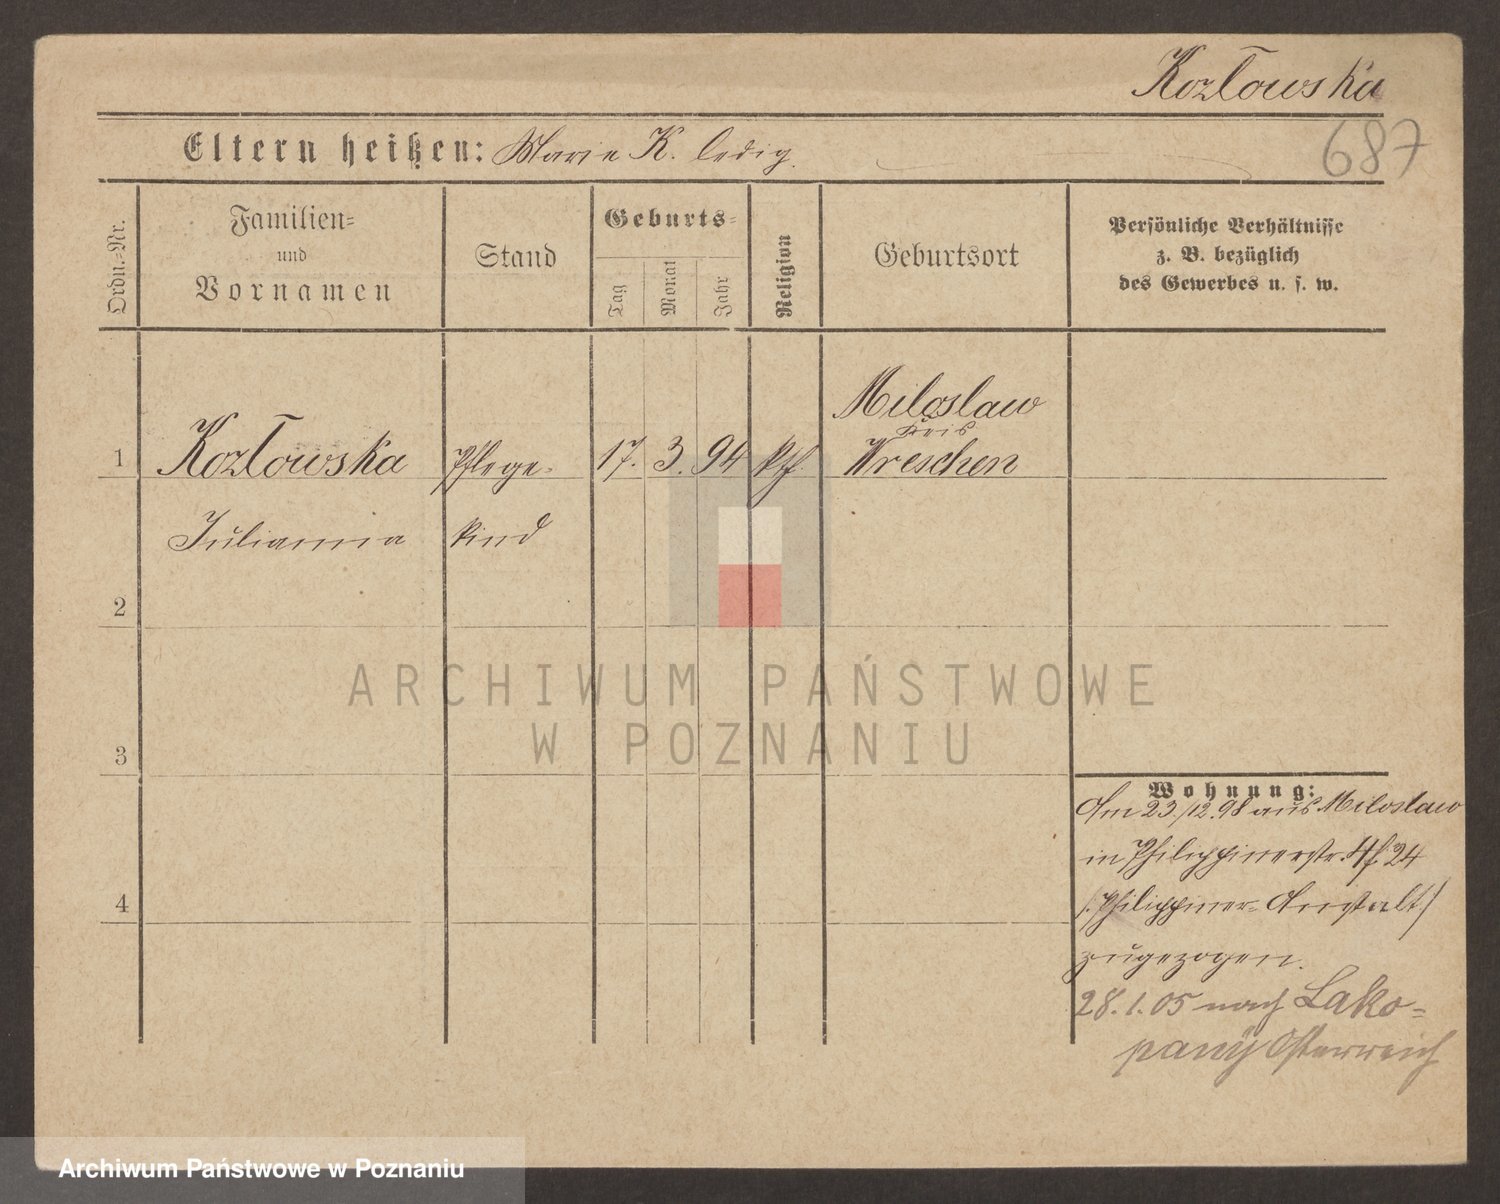 Kozłowska
687
Eltern heißen: Marie K. ledig.
Ordn.-Nr.
Familien-
und
Vornamen
Stand
Geburts-
Tag
Monat
Jahr
Religion
Geburtsort
Persönliche Verhältnisse
z. B. bezüglich
des Gewerbes u. s. w.
Miloslaw
Kreis
1 Kozłowska Pflege- 17. 3. 94 kth. Wreschen
Julianna kind
2
ARCHIWUM PAŃSTWOWE
W POZNANIU
3
Wohnung:
Am 23./12.98 aus Miloslaw
in Philippinerstr. 24
/:Philippiner-Anstalt:/
4
zugezogen.
28.1.05 nach Lako-
pany Österreich
Archiwum Państwowe w Poznaniu